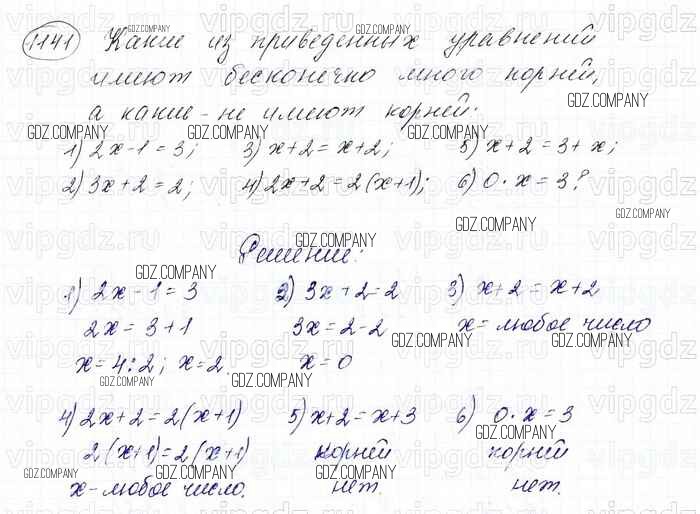 1141 Какие из приведенных уравнений
имеют бесконечно много корней,
а какие - не имеют корней:
1) 2x-1=3; 3) x+2=x+2; 5) x+2=3+x;
2) 3x+2=2; 4) 2x+2=2(x+1); 6) 0·x=3?
Решение:
1) 2x-1=3 2) 3x+2=2 3) x+2=x+2
2x=3+1 3x=2-2 x=любое число
x=4:2; x=2. x=0
4) 2x+2=2(x+1) 5) x+2=x+3 6) 0·x=3
2(x+1)=2(x+1) корней корней
x-любое число. нет. нет.
GDZ.COMPANY
vipgdz.ru